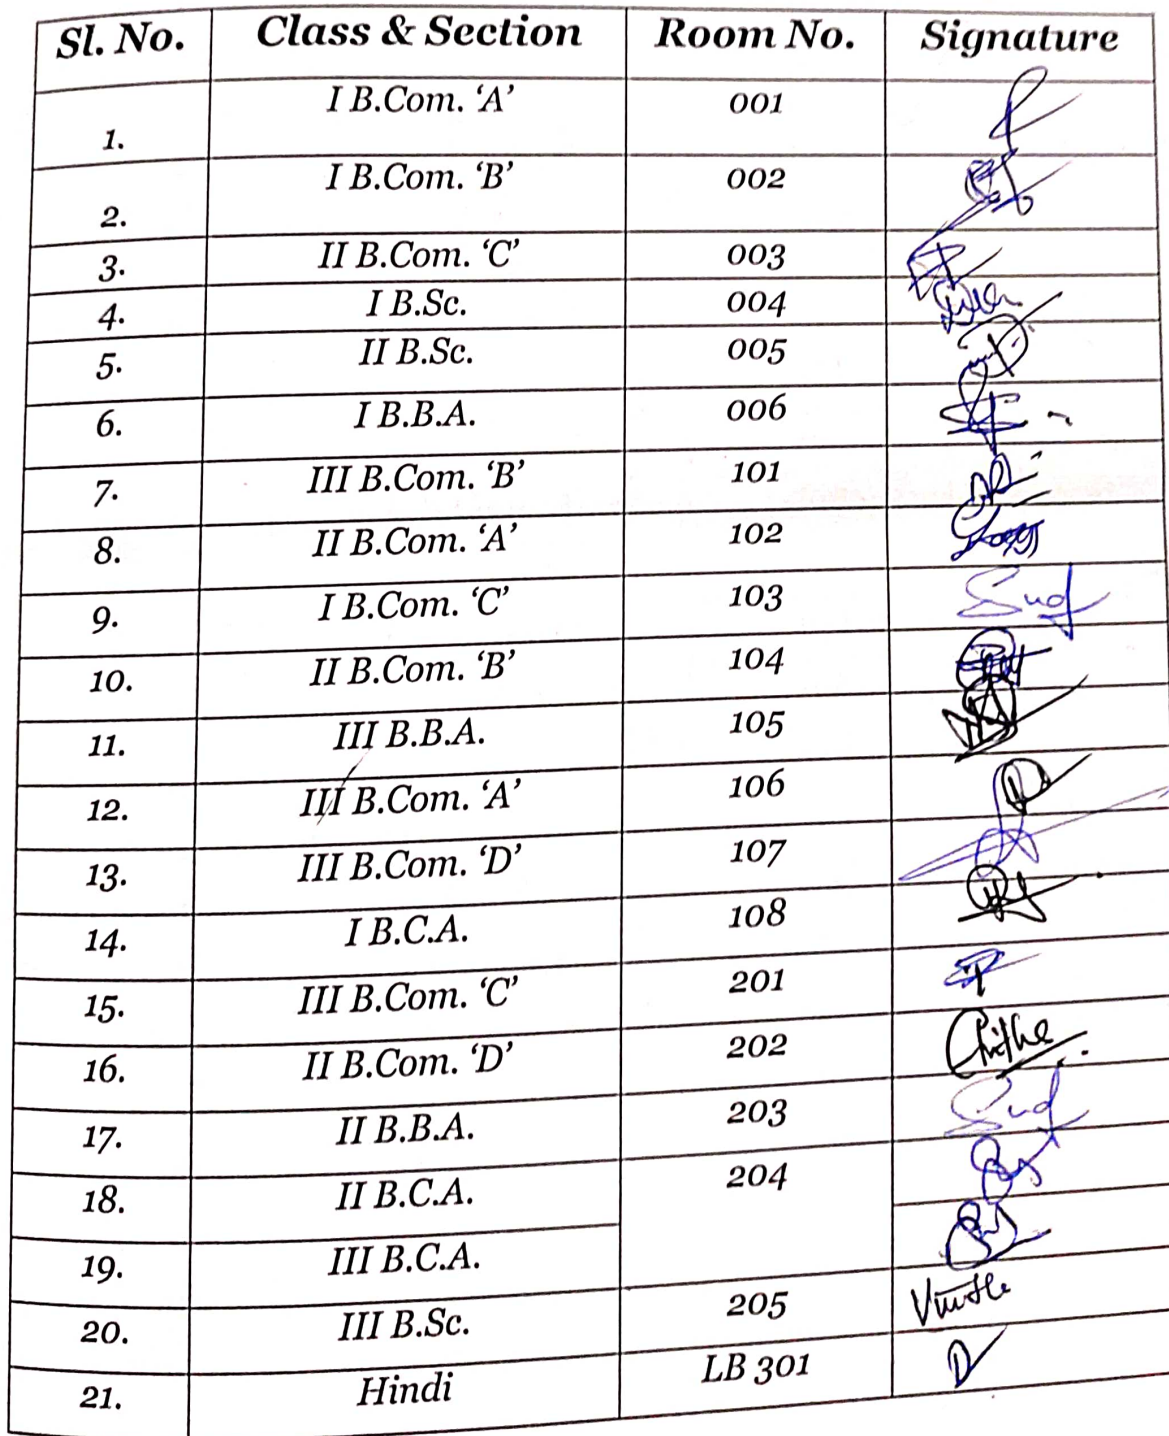 Sl. No. Class & Section Room No. Signature
1. I B.Com. ‘A’ 001
2. I B.Com. ‘B’ 002
3. II B.Com. ‘C’ 003
4. I B.Sc. 004
5. II B.Sc. 005
6. I B.B.A. 006
7. III B.Com. ‘B’ 101
8. II B.Com. ‘A’ 102
9. I B.Com. ‘C’ 103
10. II B.Com. ‘B’ 104
11. III B.B.A. 105
12. III B.Com. ‘A’ 106
13. III B.Com. ‘D’ 107
14. I B.C.A. 108
15. III B.Com. ‘C’ 201
16. II B.Com. ‘D’ 202
17. II B.B.A. 203
18. II B.C.A. 204
19. III B.C.A.
20. III B.Sc. 205
21. Hindi LB 301